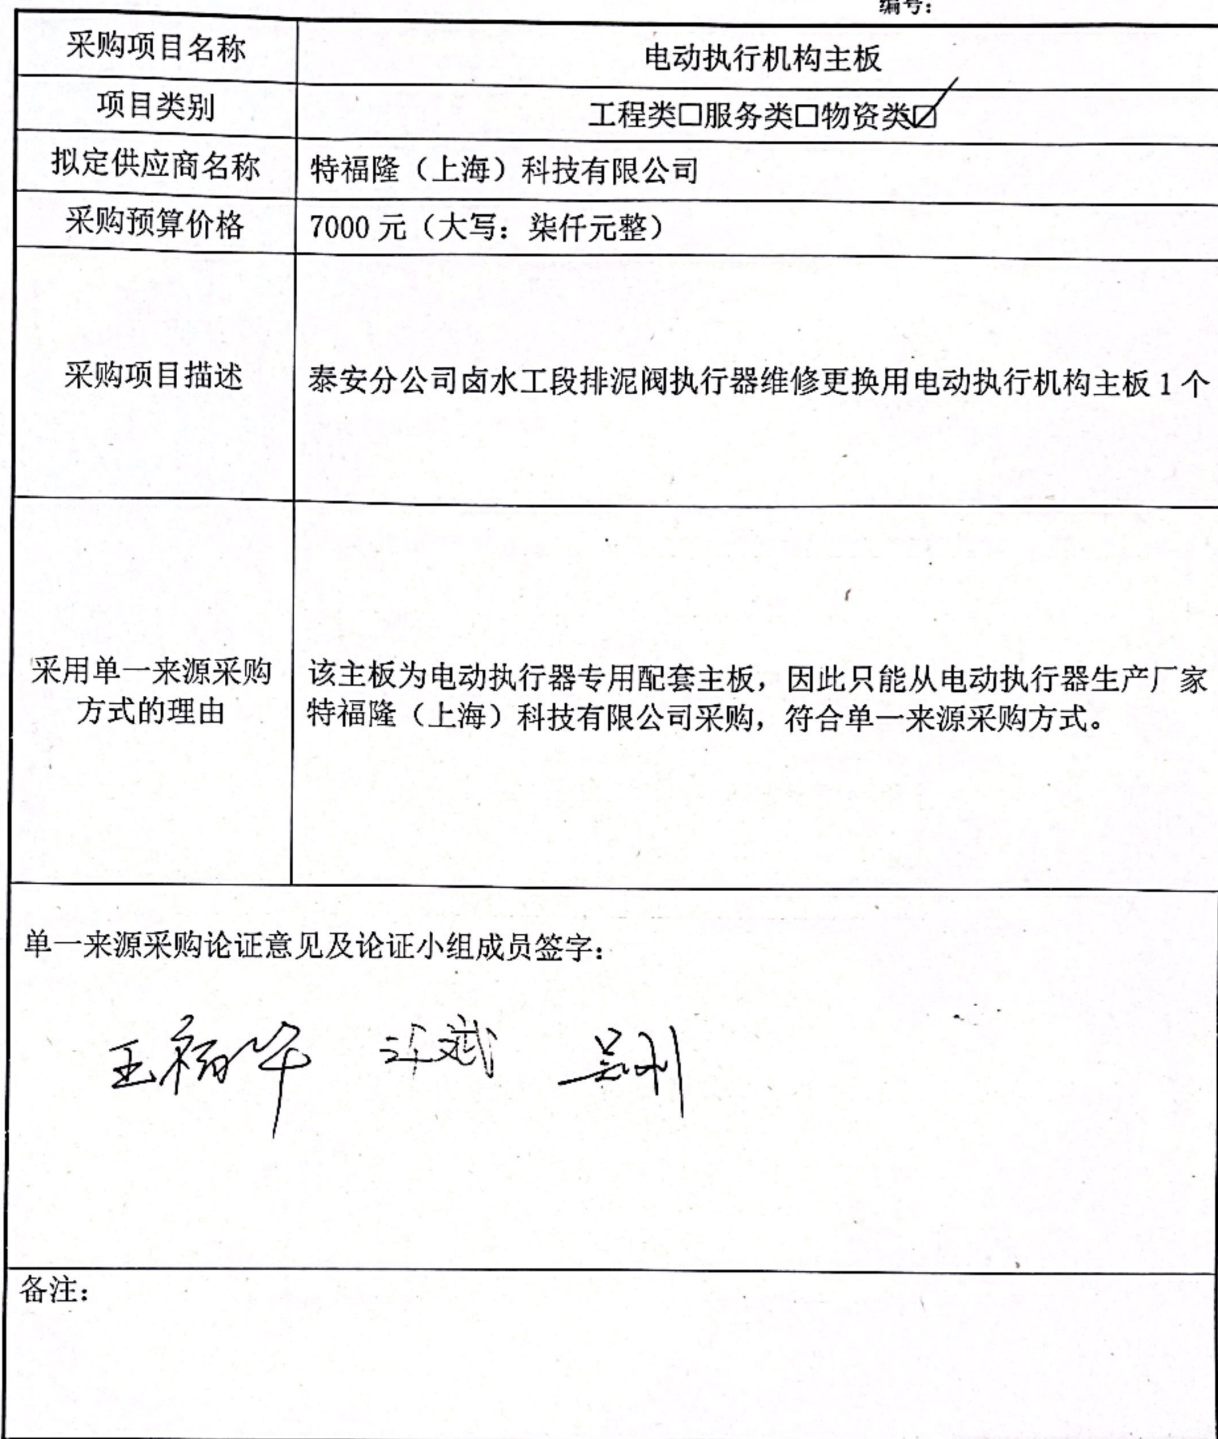 编号:
采购项目名称
电动执行机构主板
项目类别
工程类□服务类□物资类☑
拟定供应商名称
特福隆（上海）科技有限公司
采购预算价格
7000 元（大写：柒仟元整）
采购项目描述
泰安分公司卤水工段排泥阀执行器维修更换用电动执行机构主板 1 个
采用单一来源采购
方式的理由
该主板为电动执行器专用配套主板，因此只能从电动执行器生产厂家
特福隆（上海）科技有限公司采购，符合单一来源采购方式。
单一来源采购论证意见及论证小组成员签字：
备注：